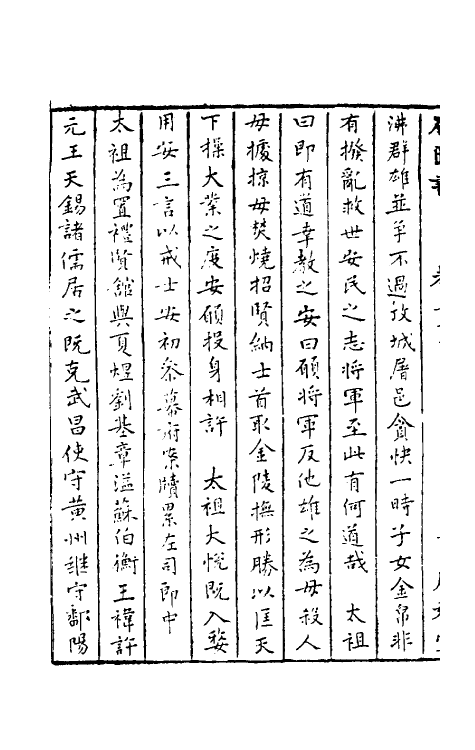 沸群雄並爭不過攻城屠邑貪快一時子女金帛非
有撥亂救世安民之志將軍至此有何道哉　太祖
曰即有道幸教之安曰願將軍反他雄之為毋殺人
毋擄掠毋焚燒招賢納士首取金陵撫形勝以匡天
下揉大業之度安願投身相許　太祖大悅既入婺
用安三言以戒士安初叅幕府案牘累左司郎中
太祖為置禮賢館與夏煜劉基章溢蘇伯衡王禕許
元王天錫諸儒居之既克武昌使守黄州継守鄱陽